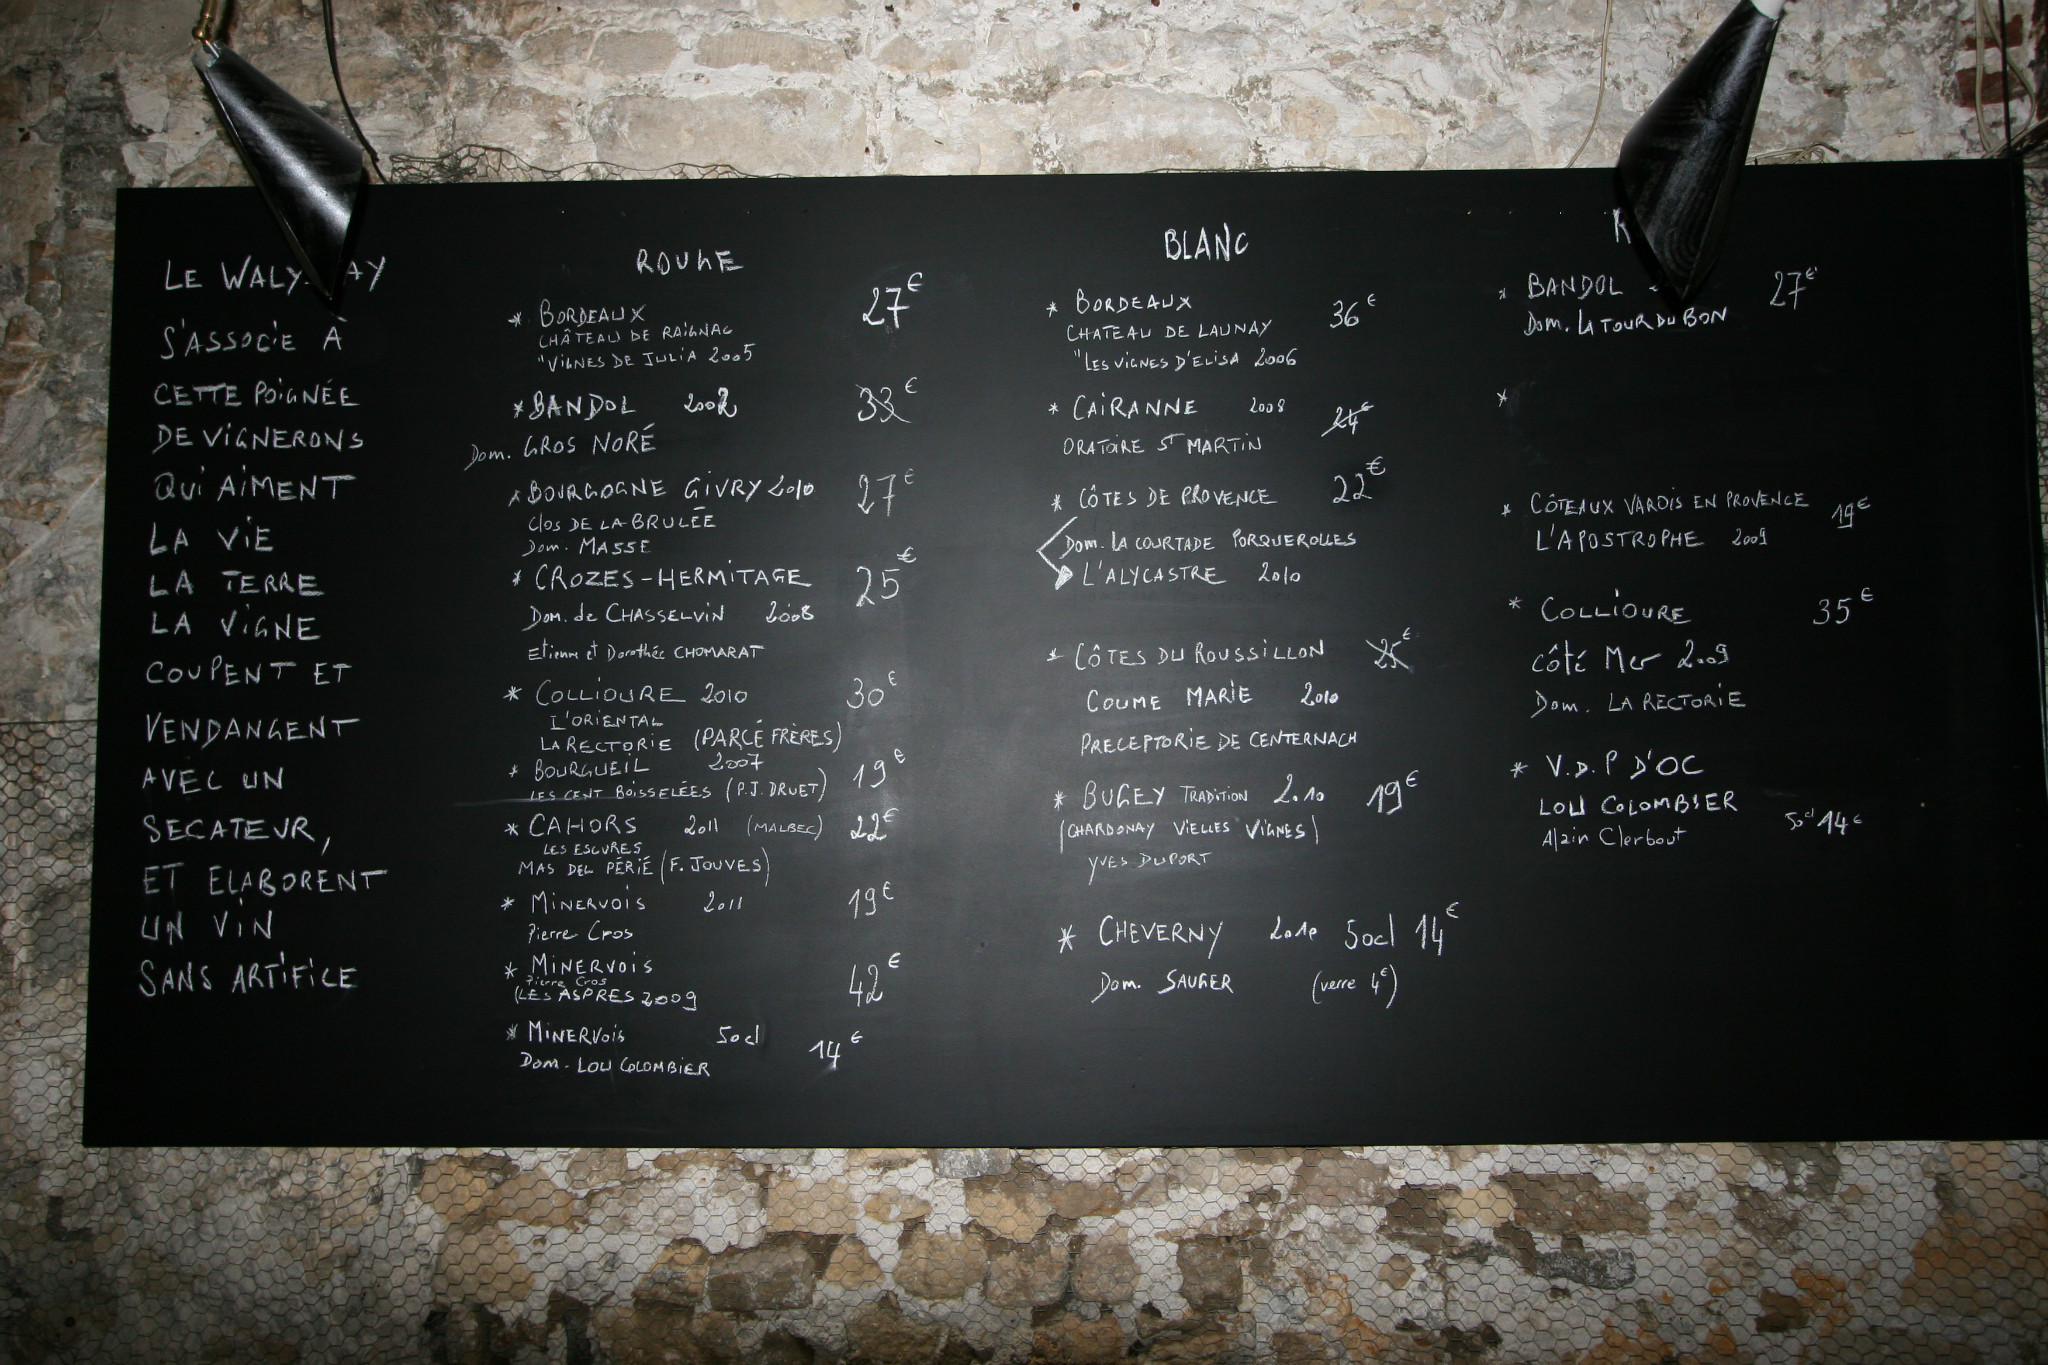 LE WALY-AY
S'ASSOCIE À
CETTE POIGNÉE
DE VIGNERONS
QUI AIMENT
LA VIE
LA TERRE
LA VIGNE
COUPENT ET
VENDANGENT
AVEC UN
SECATEUR,
ET ELABORENT
UN VIN
SANS ARTIFICE
ROUGE
* BORDEAUX 27€
CHÂTEAU DE RAIGNAC
"VIGNES DE JULIA 2005
* BANDOL 2002 33€
Dom. GROS NORÉ
* BOURGOGNE GIVRY 2010 27€
Clos DE LA BRULÉE
Dom. MASSE
* CROZES-HERMITAGE 25€
Dom. de CHASSELVIN 2008
Etienne et Dorothée CHOMARAT
* COLLIOURE 2010 30€
L'ORIENTAL
LA RECTORIE (PARCÉ FRÈRES)
* BOURGUEIL 2007 19€
LES CENT BOISSELÉES (P.J. DRUET)
* CAHORS 2011 (MALBEC) 22€
LES ESCURES
MAS DEL PÉRIÉ (F. JOUVES)
* MINERVOIS 2011 19€
Pierre Cros
* MINERVOIS 42€
Pierre Cros
(LES ASPRES 2009
* MINERVOIS 50cl 14€
Dom. LOU COLOMBIER
BLANC
* BORDEAUX 36€
CHATEAU DE LAUNAY
"LES VIGNES D'ELISA 2006
* CAIRANNE 2008 24€
ORATOIRE ST MARTIN
* CÔTES DE PROVENCE 22€
Dom. LA COURTADE PORQUEROLLES
L'ALYCASTRE 2010
* CÔTES DU ROUSSILLON 25€
COUME MARIE 2010
PRECEPTORIE DE CENTERNACH
* BUGEY TRADITION 2010 19€
(CHARDONAY VIELLES VIGNES)
YVES DUPORT
* CHEVERNY 2010 50cl 14€
Dom. SAUGER (verre 4€)
R
* BANDOL 27€
Dom. LA TOUR DU BON
*
* CÔTEAUX VAROIS EN PROVENCE 19€
L'APOSTROPHE 2009
* COLLIOURE 35€
CÔTÉ Mer 2009
Dom. LA RECTORIE
* V.D.P D'OC
LOU COLOMBIER
Alain Clerbout 50cl 14€